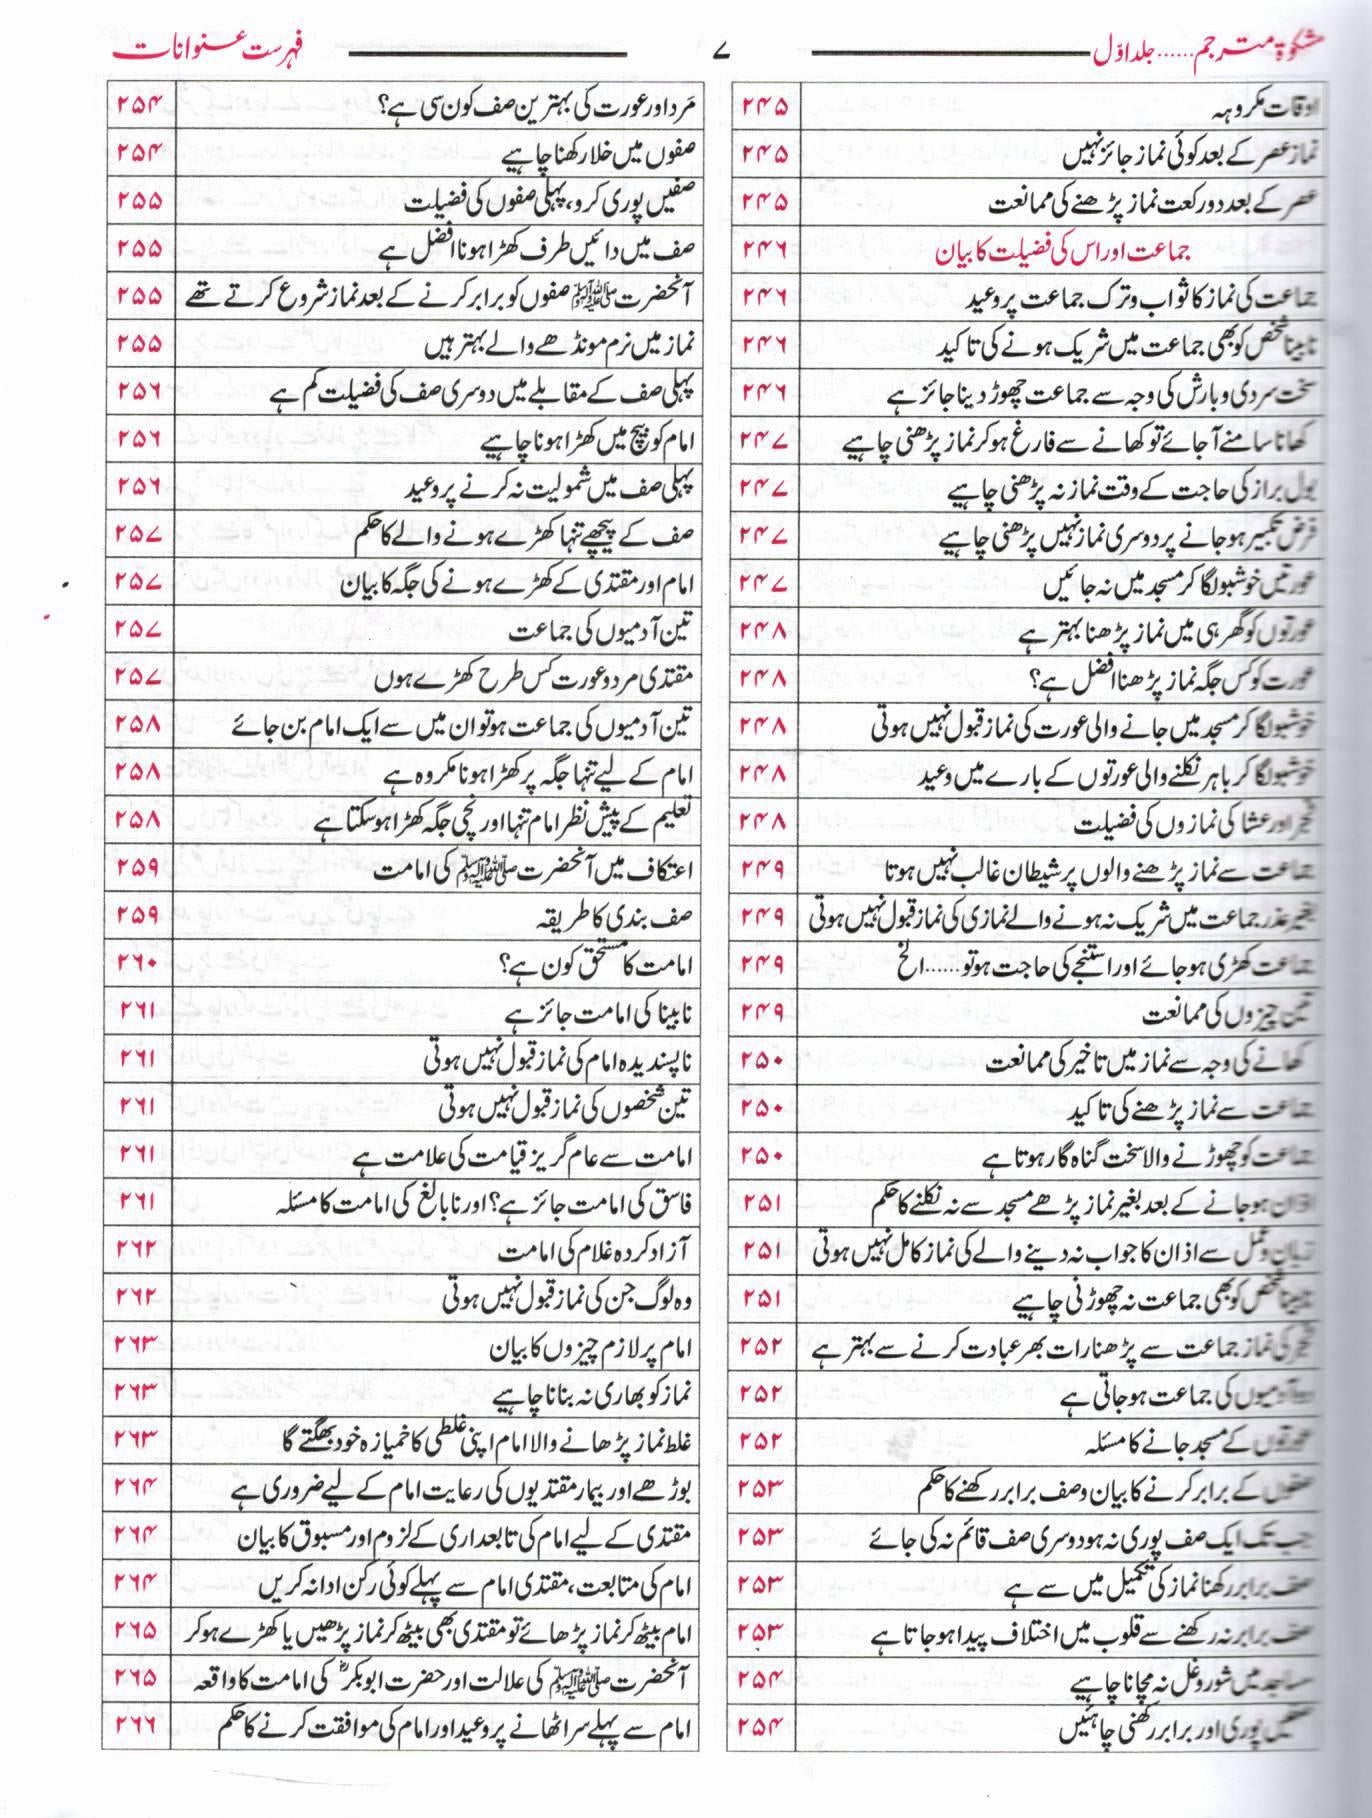 مشکوٰۃ مترجم......جلد اوّل
۷
فہرست عنوانات
اوقات مکروہہ ۲۴۵
نماز عصر کے بعد کوئی نماز جائز نہیں ۲۴۵
عصر کے بعد دو رکعت نماز پڑھنے کی ممانعت ۲۴۵
جماعت اور اس کی فضیلت کا بیان ۲۴۶
جماعت کی نماز کا ثواب و ترک جماعت پر وعید ۲۴۶
نابینا شخص کو بھی جماعت میں شریک ہونے کی تاکید ۲۴۶
سخت سردی و بارش کی وجہ سے جماعت چھوڑ دینا جائز ہے ۲۴۶
کھانا سامنے آ جائے تو کھانے سے فارغ ہو کر نماز پڑھنی چاہیے ۲۴۷
بول براز کی حاجت کے وقت نماز نہ پڑھنی چاہیے ۲۴۷
فرض تکبیر ہو جانے پر دوسری نماز نہیں پڑھنی چاہیے ۲۴۷
عورتیں خوشبو لگا کر مسجد میں نہ جائیں ۲۴۷
عورتوں کو گھر ہی میں نماز پڑھنا بہتر ہے ۲۴۸
عورت کو کس جگہ نماز پڑھنا افضل ہے؟ ۲۴۸
خوشبو لگا کر مسجد میں جانے والی عورت کی نماز قبول نہیں ہوتی ۲۴۸
خوشبو لگا کر باہر نکلنے والی عورتوں کے بارے میں وعید ۲۴۸
فجر اور عشا کی نمازوں کی فضیلت ۲۴۸
جماعت سے نماز پڑھنے والوں پر شیطان غالب نہیں ہوتا ۲۴۹
بغیر عذر جماعت میں شریک نہ ہونے والے نمازی کی نماز قبول نہیں ہوتی ۲۴۹
جماعت کھڑی ہو جائے اور استنجے کی حاجت ہو تو......الخ ۲۴۹
تین چیزوں کی ممانعت ۲۴۹
کھانے کی وجہ سے نماز میں تاخیر کی ممانعت ۲۵۰
جماعت سے نماز پڑھنے کی تاکید ۲۵۰
جماعت کو چھوڑنے والا سخت گناہ گار ہوتا ہے ۲۵۰
اذان ہو جانے کے بعد بغیر نماز پڑھے مسجد سے نہ نکلنے کا حکم ۲۵۱
زبان و عمل سے اذان کا جواب نہ دینے والے کی نماز کامل نہیں ہوتی ۲۵۱
نابینا شخص کو بھی جماعت نہ چھوڑنی چاہیے ۲۵۱
فجر کی نماز جماعت سے پڑھنا رات بھر عبادت کرنے سے بہتر ہے ۲۵۲
دو آدمیوں کی جماعت ہو جاتی ہے ۲۵۲
عورتوں کے مسجد جانے کا مسئلہ ۲۵۲
صفوں کے برابر کرنے کا بیان و صف برابر رکھنے کا حکم ۲۵۳
جب تک ایک صف پوری نہ ہو دوسری صف قائم نہ کی جائے ۲۵۳
صف برابر رکھنا نماز کی تکمیل میں سے ہے ۲۵۳
صف برابر نہ رکھنے سے قلوب میں اختلاف پیدا ہو جاتا ہے ۲۵۳
مساجد میں شور و غل نہ مچانا چاہیے ۲۵۴
صفیں پوری اور برابر رکھنی چاہئیں ۲۵۴
مَرد اور عورت کی بہترین صف کون سی ہے؟ ۲۵۴
صفوں میں خلا رکھنا چاہیے ۲۵۴
صفیں پوری کرو، پہلی صفوں کی فضیلت ۲۵۵
صف میں دائیں طرف کھڑا ہونا افضل ہے ۲۵۵
آنحضرت ﷺ صفوں کو برابر کرنے کے بعد نماز شروع کرتے تھے ۲۵۵
نماز میں نرم مونڈھے والے بہتر ہیں ۲۵۵
پہلی صف کے مقابلے میں دوسری صف کی فضیلت کم ہے ۲۵۶
امام کو بیچ میں کھڑا ہونا چاہیے ۲۵۶
پہلی صف میں شمولیت نہ کرنے پر وعید ۲۵۶
صف کے پیچھے تنہا کھڑے ہونے والے کا حکم ۲۵۷
امام اور مقتدی کے کھڑے ہونے کی جگہ کا بیان ۲۵۷
تین آدمیوں کی جماعت ۲۵۷
مقتدی مرد و عورت کس طرح کھڑے ہوں ۲۵۷
تین آدمیوں کی جماعت ہو تو ان میں سے ایک امام بن جائے ۲۵۸
امام کے لیے تنہا جگہ پر کھڑا ہونا مکروہ ہے ۲۵۸
تعلیم کے پیش نظر امام تنہا اور نچی جگہ کھڑا ہو سکتا ہے ۲۵۸
اعتکاف میں آنحضرت ﷺ کی امامت ۲۵۹
صف بندی کا طریقہ ۲۵۹
امامت کا مستحق کون ہے؟ ۲۶۰
نابینا کی امامت جائز ہے ۲۶۱
ناپسندیدہ امام کی نماز قبول نہیں ہوتی ۲۶۱
تین شخصوں کی نماز قبول نہیں ہوتی ۲۶۱
امامت سے عام گریز قیامت کی علامت ہے ۲۶۱
فاسق کی امامت جائز ہے؟ اور نابالغ کی امامت کا مسئلہ ۲۶۱
آزاد کردہ غلام کی امامت ۲۶۲
وہ لوگ جن کی نماز قبول نہیں ہوتی ۲۶۲
امام پر لازم چیزوں کا بیان ۲۶۳
نماز کو بھاری نہ بنانا چاہیے ۲۶۳
غلط نماز پڑھانے والا امام اپنی غلطی کا خمیازہ خود بھگتے گا ۲۶۳
بوڑھے اور بیمار مقتدیوں کی رعایت امام کے لیے ضروری ہے ۲۶۴
مقتدی کے لیے امام کی تابعداری کے لزوم اور مسبوق کا بیان ۲۶۴
امام کی متابعت، مقتدی امام سے پہلے کوئی رکن ادا نہ کریں ۲۶۴
امام بیٹھ کر نماز پڑھائے تو مقتدی بھی بیٹھ کر نماز پڑھیں یا کھڑے ہو کر ۲۶۵
آنحضرت ﷺ کی علالت اور حضرت ابوبکرؓ کی امامت کا واقعہ ۲۶۵
امام سے پہلے سر اٹھانے پر وعید اور امام کی موافقت کرنے کا حکم ۲۶۶